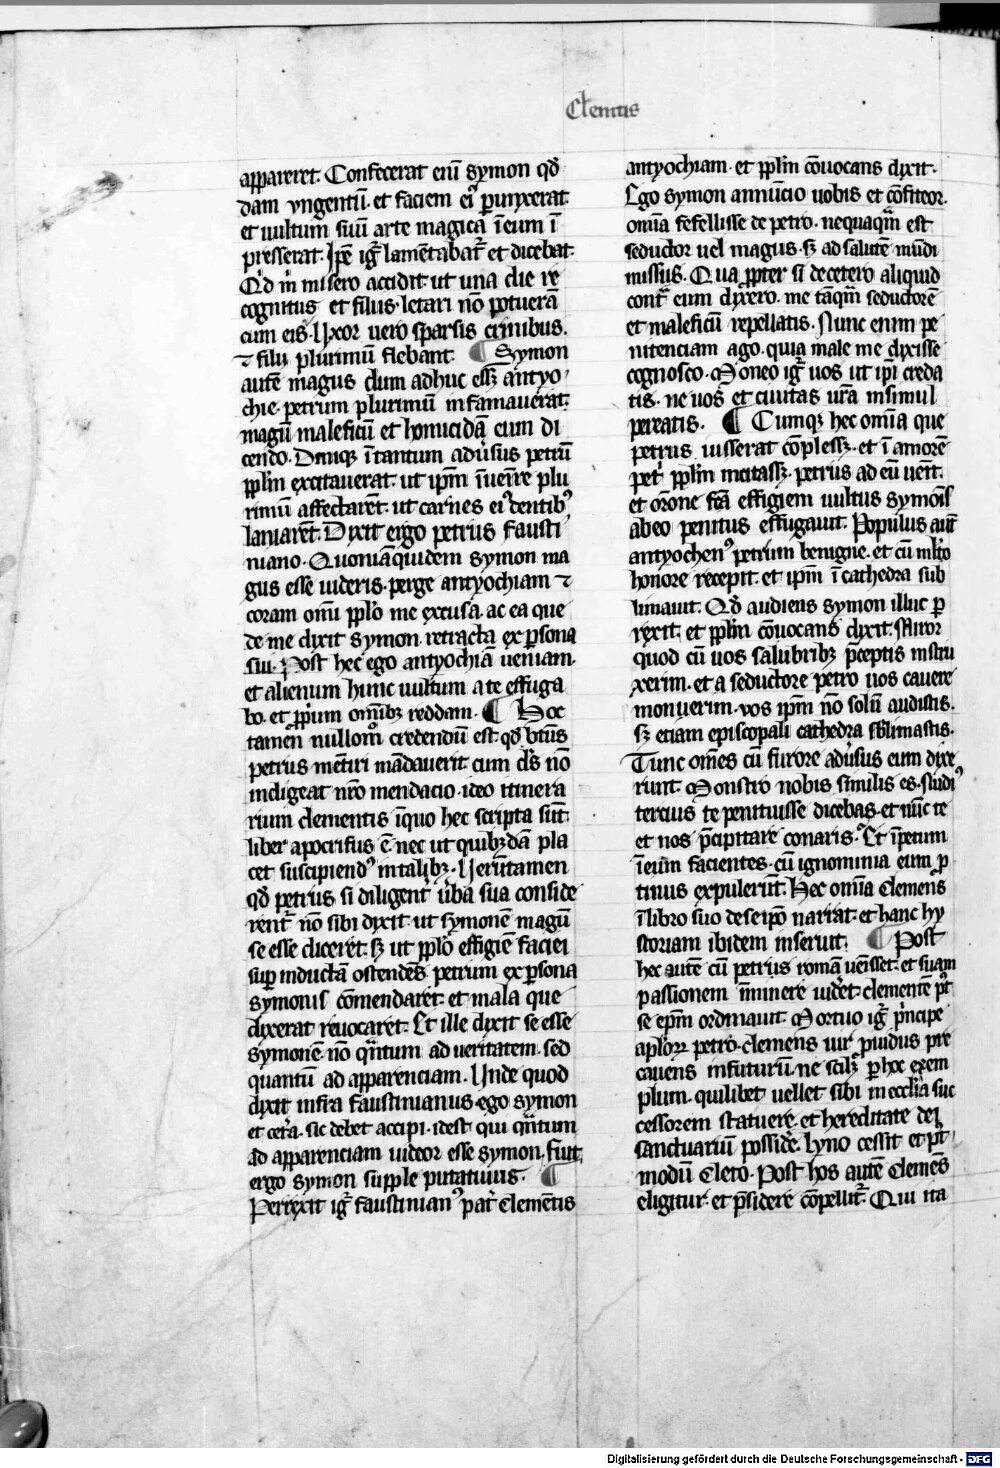 Clemens
appareret. Confecerat enī symon qd̄
dam vngentū. et faciem eiꝰ ꝑunxerat
et uultum suū arte magica ī eum ī
presserat. Ipē igr̄ lamētabat̄ et dicebat.
Qd m̄ misero accidit ut una die re
cognitus et filius letari nō potuerā
cum eis. Uxor uero sparsis crinibus.
⁊ filii plurimū flebant. ¶ Symon
autē magus dum adhuc essꝫ antyo
chie. petrum plurimū infamauerat.
magū maleficū et homicidā eum di
cendo. Deniqꝫ ītantum adūsus petrū
ppl̄m excitauerat. ut ip̄m īuenire plu
rimū affectarēt. ut carnes eiꝰ dentibꝰ
laniarēt. Dixit ergo petrus fausti
niano. Quoniāquidem symon ma
gus esse uideris. perge antyochiam ⁊
coram omī ppl̄o me excusa. ac ea que
de me dixit symon retracta ex ꝑsona
sui. Post hec ego antyochiā ueniam.
et alienum hunc uultum a te effuga
bo. et pp̄ium omībꝫ reddam. ¶ Hoc
tamen nullomō credendū est. qd̄ btūs
petrus mētiri mādauerit cum dꝰs nō
indigeat nr̄o mendacio. ideo itinera
rium clementis īquo hec scripta sūt.
liber apocrifus ē nec ut quibꝫdā pla
cet suscipiendꝰ in talibꝫ. Uerūtamen
qd̄ petrus si diligent̄ ūba sua conside
rent̄ nō sibi dixit ut symonē magū
se esse diceret. sꝫ ut ppl̄o effigiē faciei
suꝑ inductā ostendēs petrum ex ꝑsona
symonis cōmendaret. et mala que
dixerat reuocaret. Et ille dixit se esse
symonē nō qn̄tum ad ueritatem. sed
quantū ad apparenciam. Unde quod
dixit infra faustinianus. ego symon
et cet̄a. sic debet accipi. idest qui qn̄tum
ad apparenciam uideor esse symon. fuit
ergo symon supple putatiuus. ¶
Perrexit igr̄ faustinianꝰ pat̄ clemētis
antyochiam. et ppl̄m cōuocans dixit.
Ego symon annūcio uobis et cōfiteor.
omīa fefellisse de petro. nequaqm̄ est
seductor uel magus. sꝫ ad salutē mūdi
missus. Qua ppter si decetero aliquid
cont̄ eum dixero. me tāqm̄ seductorē
et maleficū repellatis. Nunc enim pe
nitenciam ago. quia male me dixisse
cognosco. Moneo igr̄ uos ut ip̄i creda
tis. ne uos et ciuitas ur̄a insimul
pereatis. ¶ Cumqꝫ hec omīa que
petrus iusserat cōplessꝫ. et ī amorē
pet̄ ppl̄m incitassꝫ. petrus ad eū uēit.
et or̄one fcā effigiem uultus symōis
ab eo penitus effugauit. Populus aut̄
antyochenꝰ petrum benigne. et cū mlt̄o
honore recepit. et ip̄m ī cathedra sub
limauit. Qd̄ audiens symon illuc ꝑ
rexit. et ppl̄m cōuocans dixit. Miror
quod cū uos salubribꝫ p̄ceptis instru
xerim. et a seductore petro uos cauere
monuerim. vos ip̄m nō solū audistis.
sꝫ etiam episcopali cathedra sblimastis.
Tunc om̄es cū furore adūsus eum dixe
runt. Monstro nobis similis es. nudiꝰ
tercius te penituisse dicebas. et nūc te
et nos p̄cipitare conaris. Et īpetum
ī eum facientes. cū ignominia eum p
tinus expulerūt. Hec omīa clemens
ī libro suo de seip̄o narrat. et hanc hy
storiam ibidem inseruit. ¶ Post
hec autē cū petrus romā uēisset. et suam
passionem īminere uidet. clementē pt̄
se ep̄m ordinauit. Mortuo igr̄ p̄ncipe
apl̄oꝝ petro. clemens uir puidus pre
cauens infuturū. ne scilꝫ ꝑ hoc exem
plum. quilibet uellet sibi in eccl̄ia suc
cessorem statuere. et hereditate dei
sanctuariū possidē. lyno cessit et pt̄
modū cleto. Post hos autē clemēs
eligitur. et p̄sidere cōpellit̄. Qui ita
Digitalisierung gefördert durch die Deutsche Forschungsgemeinschaft - DFG